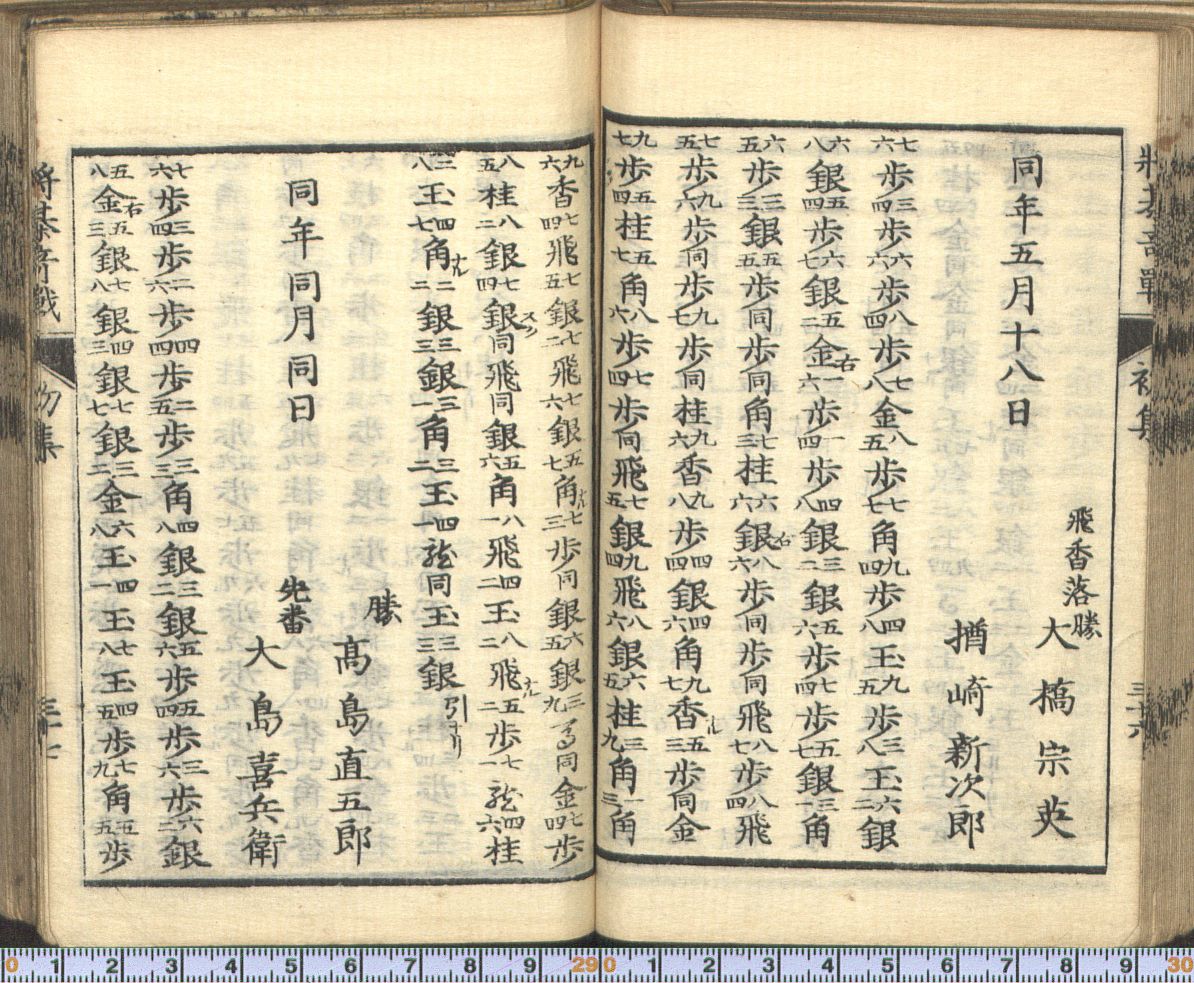 同年五月十八日
飛香落勝 大橋宗英
楢崎新次郎
七六歩三四歩六六歩八四歩七八金八五歩七七角九四歩四八玉九五歩三八玉六二銀
六八銀五四歩六七銀五二金右一六歩一四歩四八銀三二銀五六歩七四歩五七銀三一角
六五歩三三銀五五歩同歩同角七三桂六六銀右八六歩同歩同飛八七歩八四飛
七五歩九六歩同歩九七歩同桂九六香九八歩四四銀四六角九七香ナル五三歩同金
九七歩五四桂五七角八六歩七四歩同飛七五銀九四飛八六銀六五桂三九角一三角
将棊奇戦 初集 三十六
九六香七四飛七五銀七二飛七六銀五七角ナル七三歩同銀六五銀三九馬同金七四歩
八五桂八二銀七四銀同飛同銀五六角八一飛四二玉八二飛ナル五二歩七一龍四六桂
二八玉四七角ナル二二銀三三銀三一角三二玉四一龍同玉三三銀引ナリ
勝 高島直五郎
同年同月同日 先番 大島喜兵衛
七六歩三四歩二六歩四四歩二五歩三三角四八銀三二銀五六歩五四歩三六歩六二銀
五八金右五三銀七八銀四三銀七七銀三二金六八玉四一玉七八玉四五歩七九角五五歩
将棊奇戦 初集 三十七